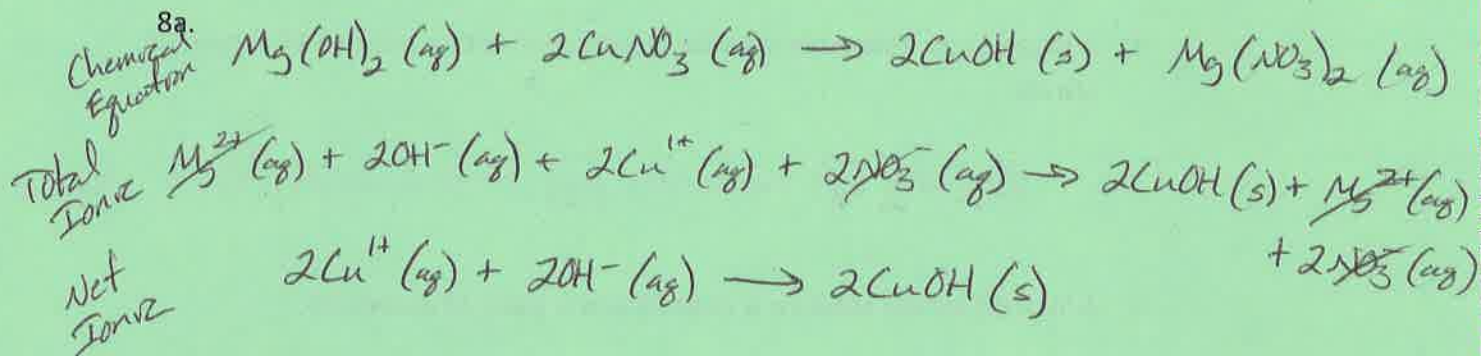 8a.
Chemical Equation Mg(OH)₂ (aq) + 2CuNO₃ (aq) → 2CuOH (s) + Mg(NO₃)₂ (aq)
Total Ionic Mg²⁺ (aq) + 2OH⁻ (aq) + 2Cu¹⁺ (aq) + 2NO₃⁻ (aq) → 2CuOH (s) + Mg²⁺ (aq)
+ 2NO₃⁻ (aq)
Net Ionic 2Cu¹⁺ (aq) + 2OH⁻ (aq) → 2CuOH (s)